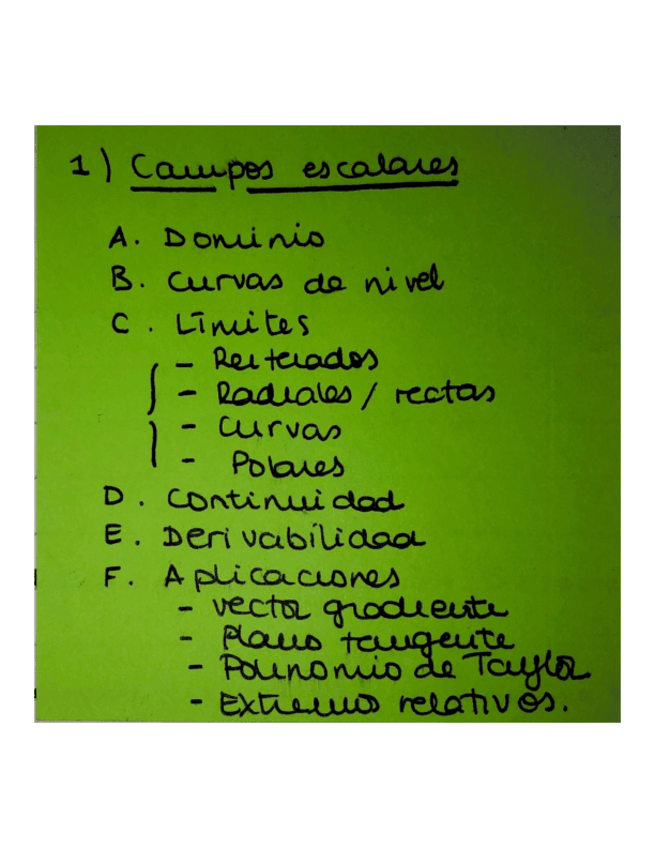 1) Campos escalares
A. Dominio
B. Curvas de nivel
C. Límites
- Reiterados
- Radiales / rectas
- Curvas
- Polares
D. Continuidad
E. Derivabilidad
F. Aplicaciones
- vector gradiente
- Plano tangente
- Polinomio de Taylor
- Extremos relativos.